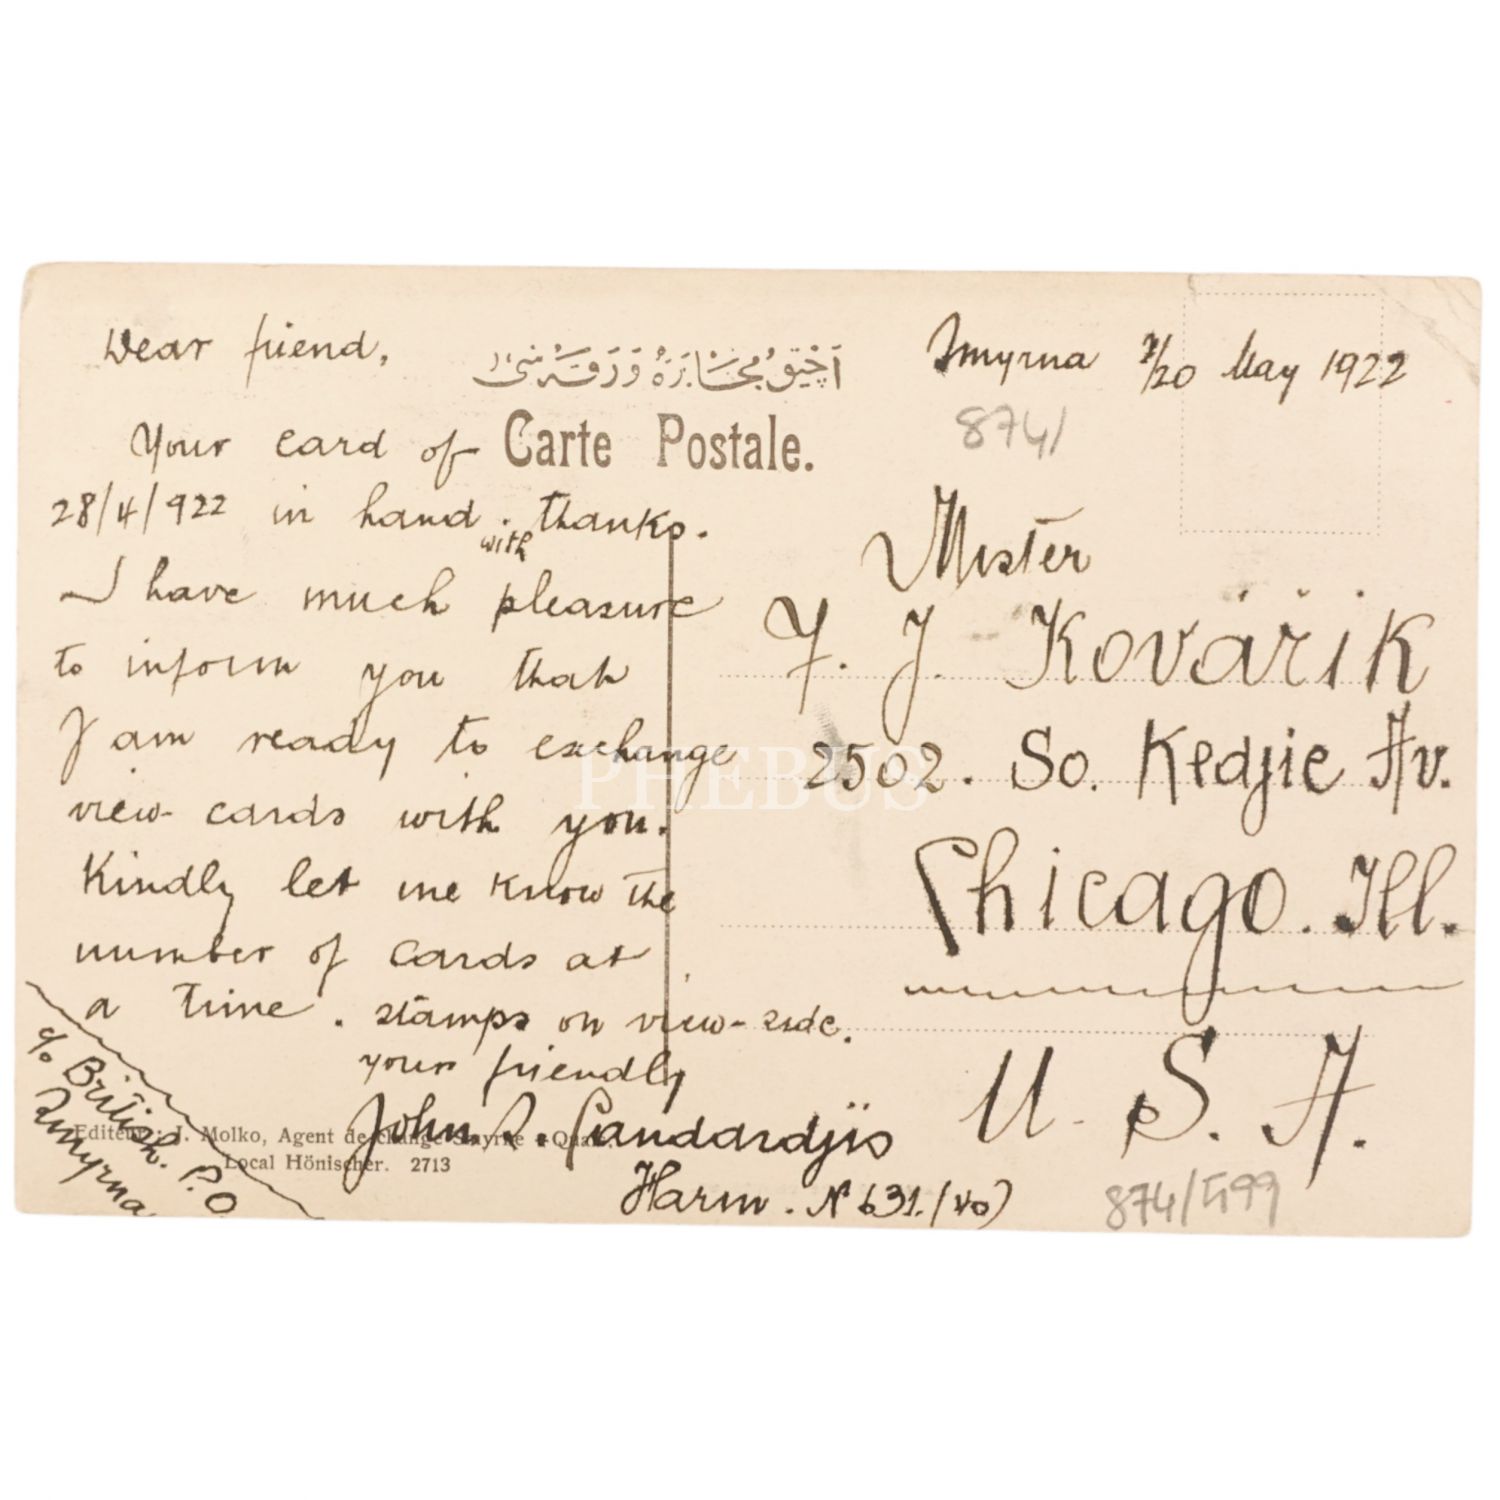 Dear friend,
Smyrna 7/20 May 1922
Carte Postale.
874/
Your card of
28/4/922 in hand. with thanks.
I have much pleasure
to inform you that
I am ready to exchange
view-cards with you.
Kindly let me know the
number of cards at
a time. stamps on view-side.
your friendly
John Candardjis
Harm. No 631.
c/o British. P.O
Smyrna
Editeur: J. Molko, Agent de change Smyrne
Local Hönischer. 2713
Mister
F. J. Kovářik
2502. So. Kedjie Av.
Chicago. Ill.
U. S. A.
874/
PHEBUS